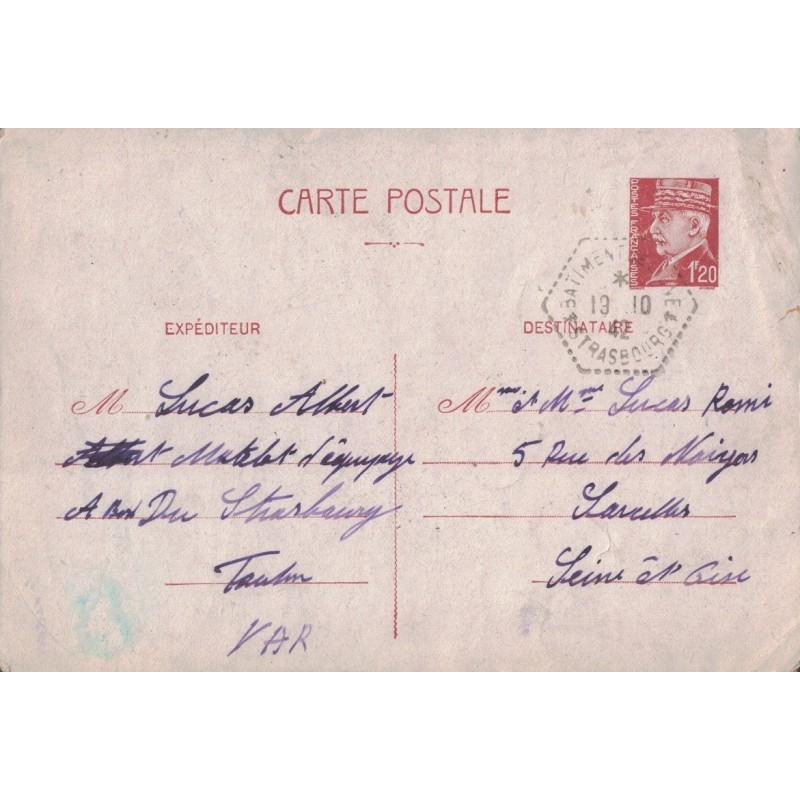 CARTE POSTALE
POSTES FRANÇAISES
1F20
BATIMENT NE
13 10
42
STRASBOURG
EXPÉDITEUR
M Lucas Albert
Matelot d'équipage
A Bord Du Strasbourg
Toulon
VAR
DESTINATAIRE
Mme et Mme Lucas Remi
5 Rue des Noiyers
Sarcelles
Seine et Oise